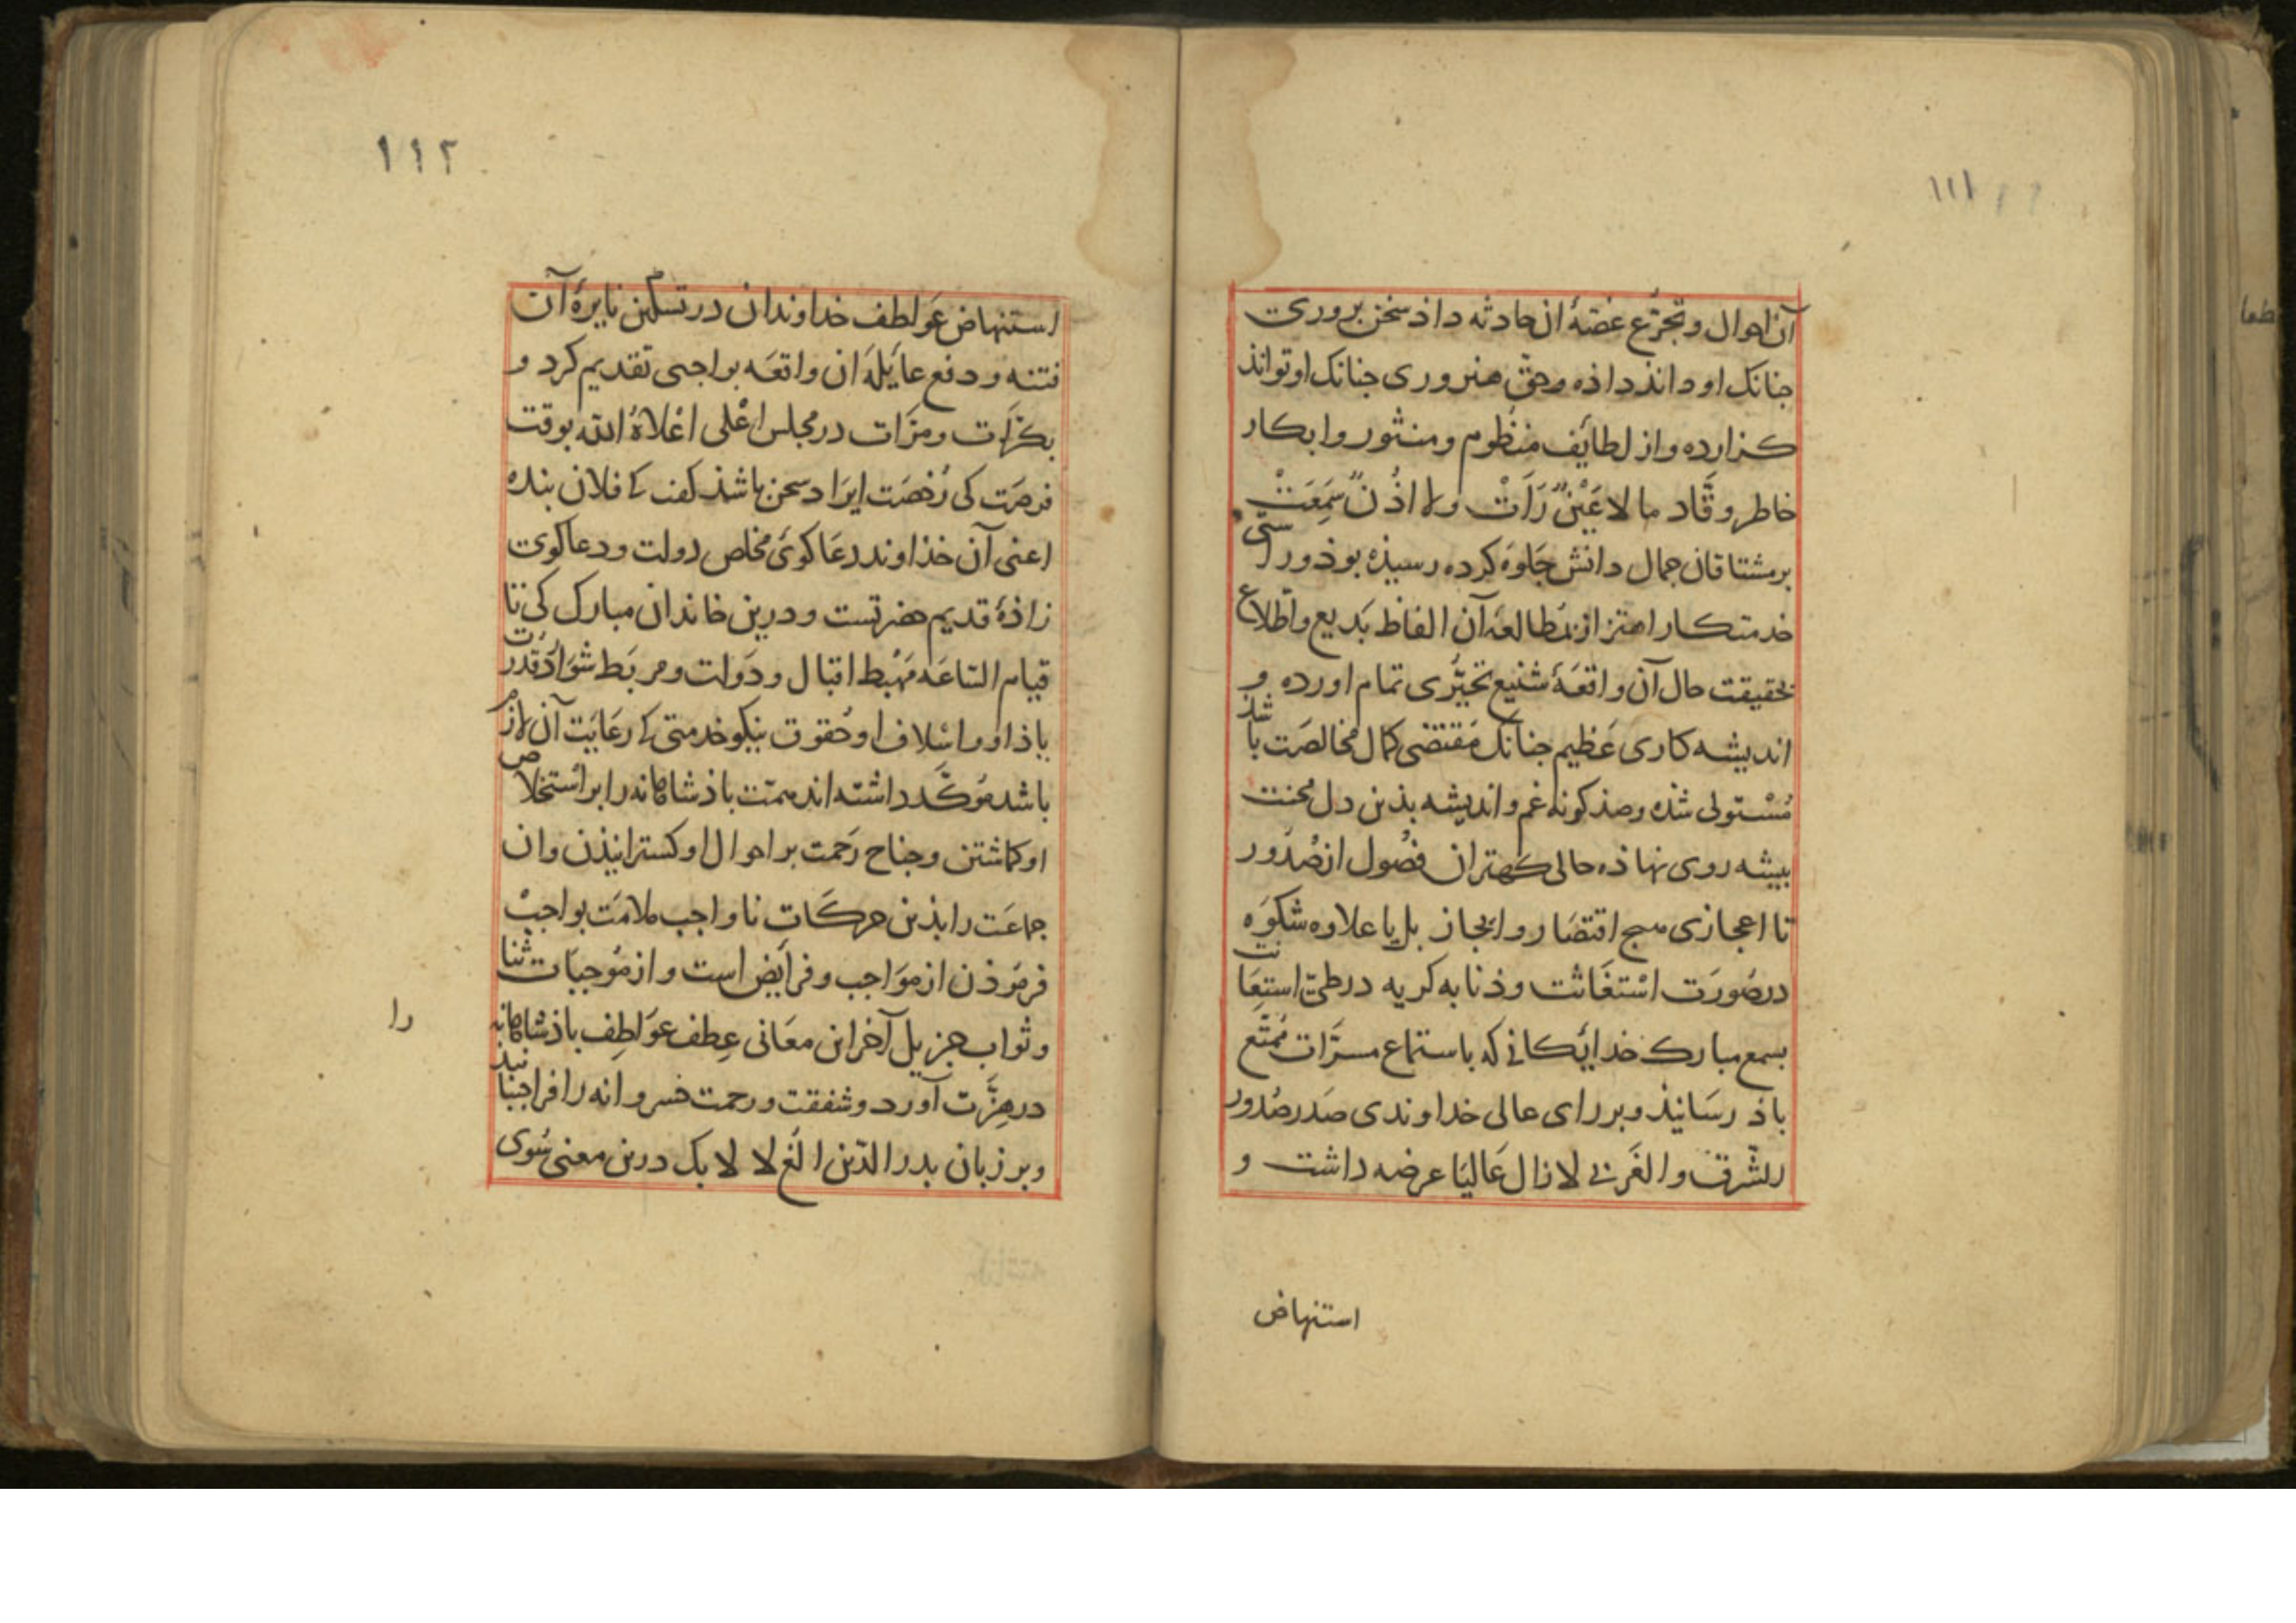 ١١١
آن احوال و تجرّع غصّهٔ ان حادثه داذ سخن پروری
جنانک او داند داذه و حق هنروری جنانک او تواند
کزارده و از لطایف منظوم و منثور و ابکار
خاطر وقّاد ما لا عَیْنٌ رَاَتْ ولا اذُنٌ سَمِعَتْ
بر مشتاقان جمال دانش جلوَه کرده رسیذه بوذ و راستی
خدمتکار اهتزاز مطالعهٔ آن الفاظ بَدیع و اطّلاع
بحقیقت حال آن واقعَهٔ شنیع تحیّری تمام اورده و
اندیشه کاری عَظیم جنانک مقتضی کمال مخالصَت باشذ
مُسْتولی شذه و صذ کونه غم و اندیشه بذین دل محنت
بیشه روی نهاذه حالی کهتر ان فصُول از صُدُور
تا اعجازی سج اقتصَار و ایجاز بل با علاوه شکوَه
در صُورَت اسْتغَاثت و ذنابه کریه در طیّ استِعَانت
بسمع مبارک خدایکانی که باستماع مسرّات مُمتّع
باذ رسَانیذ و بر رای عالی خداوندی صَدر صُدور
الشّرق و الغَربی لا زال عَالیَا عرضه داشت و
استنهاض
١١٢
استنهاض عَوَاطف خداوندان در تسکین نایرهٔ آن
فتنه و دفع غایلَهٔ ان واقعَه بواجبی تقدیم کرد و
بکرّات و مرّات در مجلس اعْلی اعْلاهُ الله بوقت
فرصَت کی رُخصَت ایرَاد سخن باشذ کفت کی فلان بنده
اعنی آن خذاوند دعَا کویَ مخلص دولت و دعا کوی
زاذهٔ قدیم حضرتست و درین خاندان مبارک کی تا
قیام السّاعَه مَهْبط اقبال و دَولت و مربَط شوَارد قدرت
باذ او و اسْلاف او حُقوق نیکو خدمتی کی رعَایَت آن لازم
باشد مُوکّد داشته اند همّت باذشاهانه را بر اسْتخلاص
او کماشتن و جناح رَحمت بر احوال او کسترانیذن و ان
جماعَت را بذین حرکَات نا واجب ملامَت بواجبْ
فرمُوذن از موَاجب و فرایَض است و از مُوجبَات ثنا
و ثواب جزیل آخر این معَانی عِطف عوَاطِف باذشاهانه را
در هِزّت آورد و شفقت و رحمت خسروانه را فراجنبانیذ
و بر زبان بدر الدّین الغ لا لا بک درین معنی سُوی